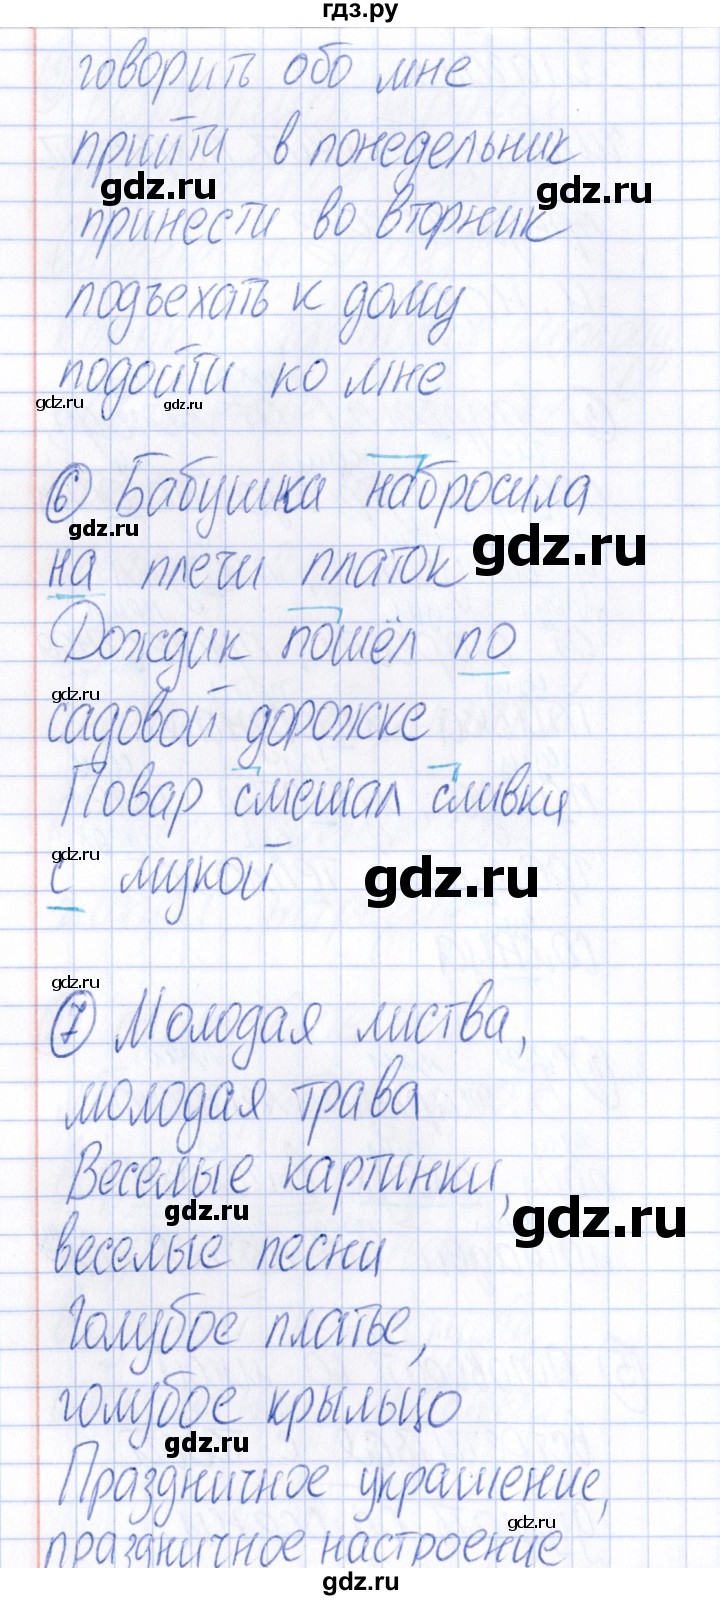 гдз.ру
говорить обо мне
прийти в понедельник
gdz.ru
gdz.ru
принести во вторник
подъехать к дому
подойти ко мне
gdz.ru
gdz.ru
6 Бабушка набросила
gdz.ru
gdz.ru
на плечи платок
Дождик пошёл по
gdz.ru
садовой дорожке
Повар смешал сливки
gdz.ru
с мукой
gdz.ru
gdz.ru
7 Молодая листва,
молодая трава
Веселые картинки,
gdz.ru
gdz.ru
веселые песни
Голубое платье,
голубое крыльцо
gdz.ru
Праздничное украшение,
gdz.ru
праздничное настроение
gdz.ru